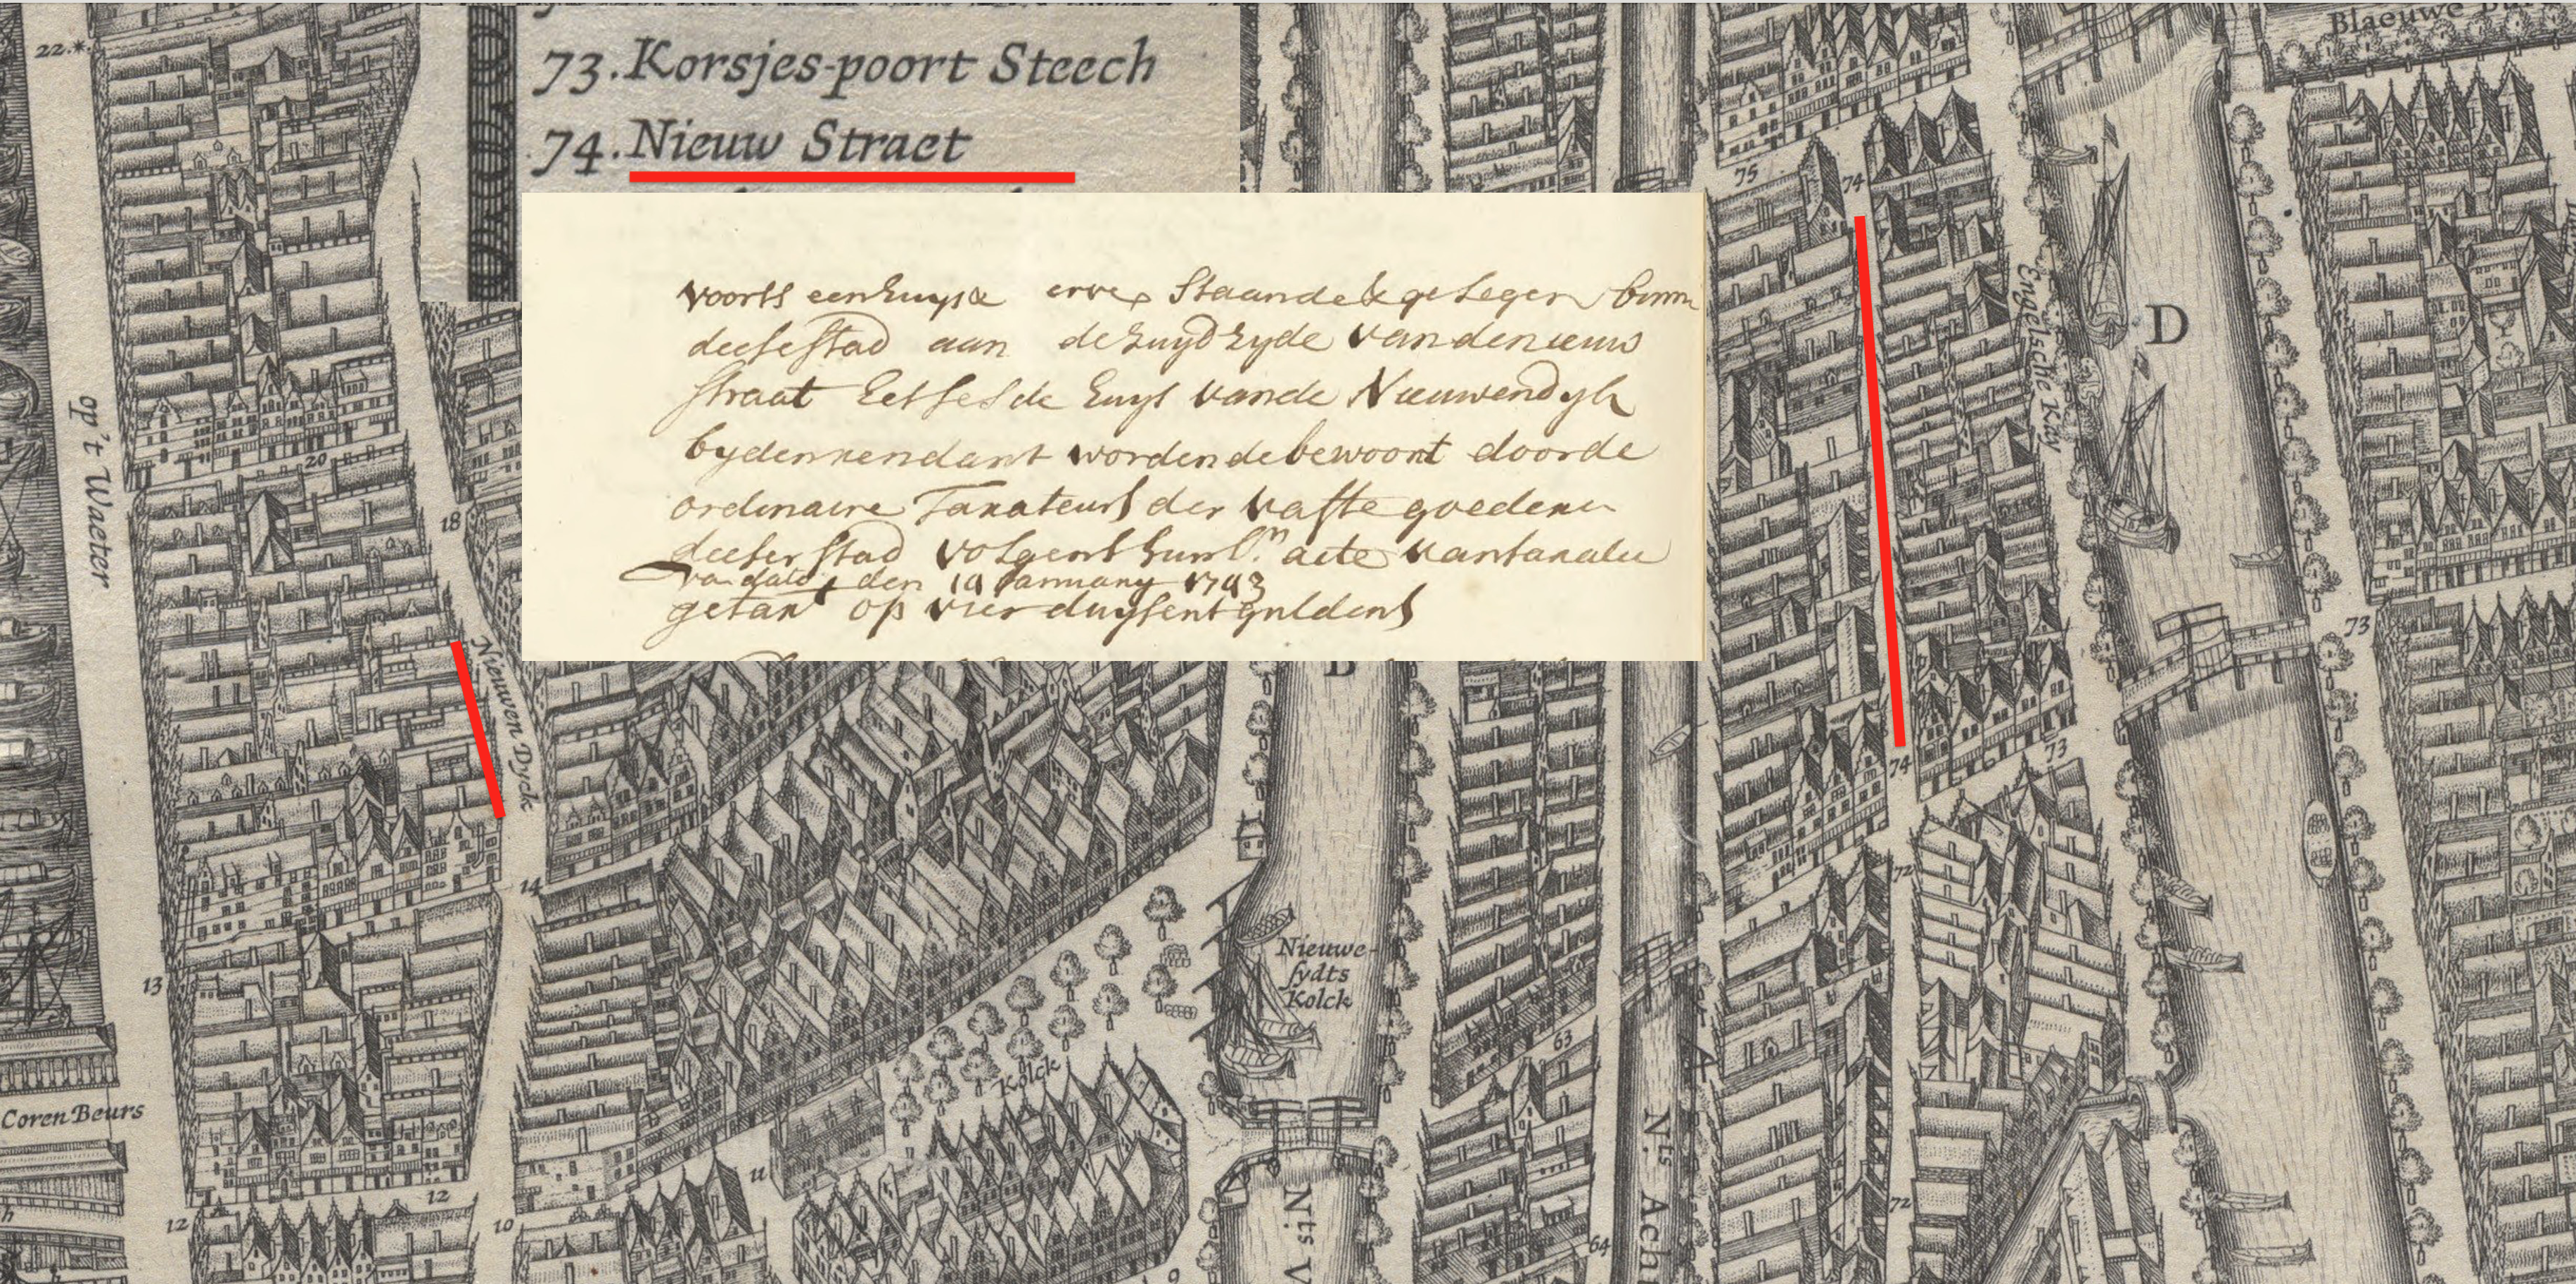 22.*.
73. Korsjes-poort Steech
74. Nieuw Straet
Blaeuwe
voorts een huys & erve Staande & gelegen binn
deese stad aan de zuyd zyde van de nieuw
straat het sesde huys van de Nieuwendyk
by den rendant wordende bewoont door de
ordinaire Taxateurs der vaste goederen
deeser stad volgens hunl.n acte van taxatie
van dato den 10 January 1793
getaxt op vier duysent guldens
75
74
Engelsche Kay
D
op't Waeter
20
18
Nieuwen Dyck
73
74
73
14
72
13
Nieuwe-
sydts
Kolck
63
Kolck
Coren Beurs
11
Nts Ach
12
12
10
Nts V
72
64
9